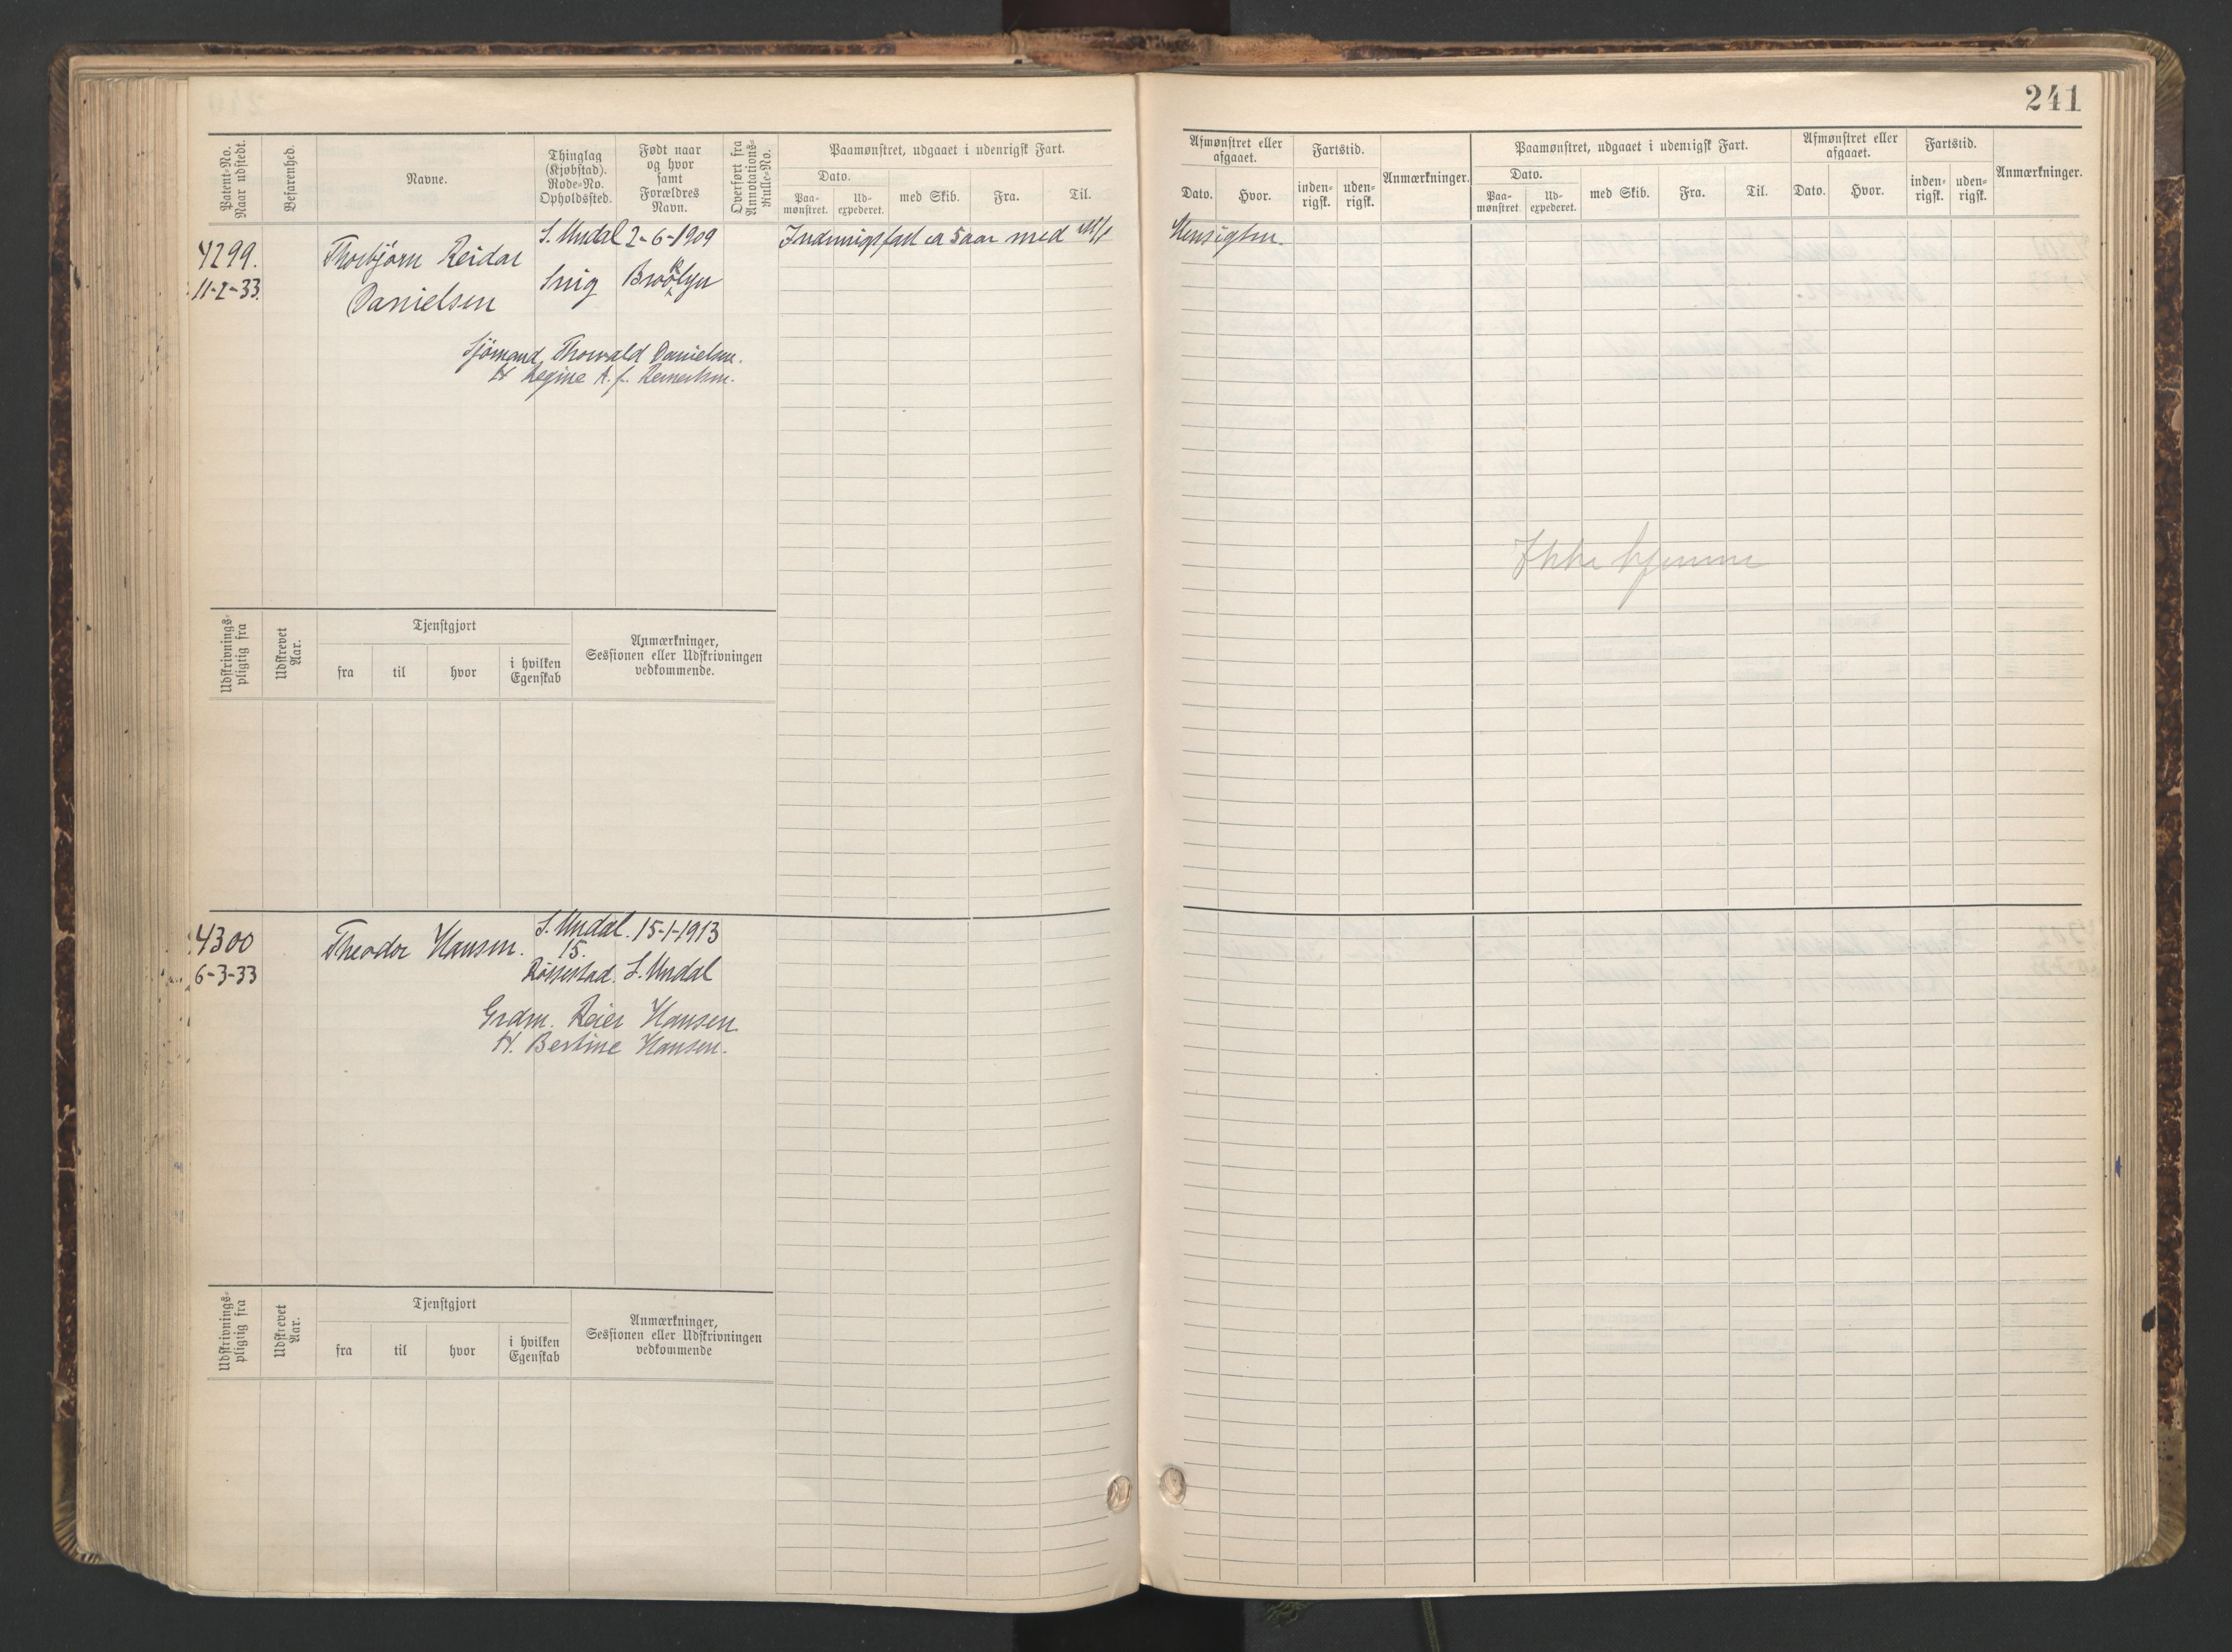 241
Patent-No.
Naar udstedt.
Befarenhed.
Navne.
Thinglag
(Kjøbstad).
Rode-No.
Opholdssted.
Født naar
og hvor
samt
Forældres
Navn.
Overført fra
Annotations-
Rulle-No.
Paamønstret, udgaaet i udenrigsk Fart.
Dato.
Paa-
mønstret.
Ud-
expederet.
med Skib.
Fra.
Til.
Afmønstret eller
afgaaet.
Dato.
Hvor.
Fartstid.
inden-
rigsk.
uden-
rigsk.
Anmærkninger.
Paamønstret, udgaaet i udenrigsk Fart.
Dato.
Paa-
mønstret
Ud-
expederet.
med Skib.
Fra.
Til.
Afmønstret eller
afgaaet.
Dato.
Hvor.
Fartstid.
inden-
rigsk.
uden-
rigsk.
Anmærkninger.
4299.
11-2-33.
Thorbjørn Reidar
Danielsen
S. Undal
Snig
2-6-1909
Brooklyn
Sjömand Thorvald Danielsen.
H Regine A. f. Reinertsen.
Indenrigsfart ca 5 aar med M/s
Hensigten.
Ikke hjemme
Udskrivnings-
pligtig fra
Udskrevet
Aar.
Tjenstgjort
fra
til
hvor
i hvilken
Egenskab
Anmærkninger,
Sessionen eller Udskrivningen
vedkommende.
4300
6-3-33
Theodor Hansen.
S. Undal. 15-1-1913
15.
Røssestad. S. Undal
Grdm. Reier Hansen.
H. Bertine Hansen.
Udskrivnings-
pligtig fra
Udskrevet
Aar.
Tjenstgjort
fra
til
hvor
i hvilken
Egenskab
Anmærkninger,
Sessionen eller Udskrivningen
vedkommende